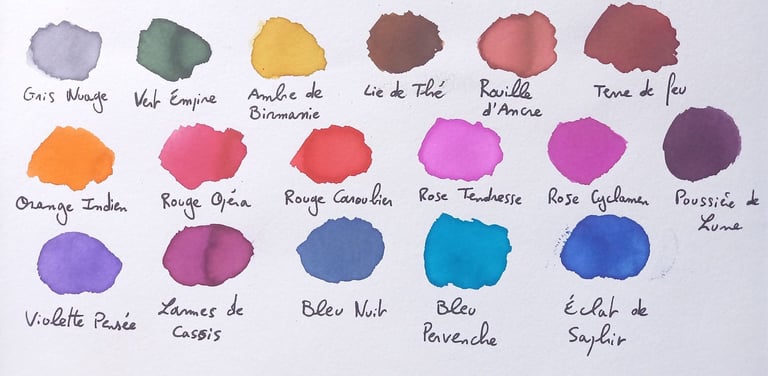 Gris Nuage
Vert Empire
Ambre de
Birmanie
Lie de Thé
Rouille
d'Ancre
Terre de feu
Orange Indien
Rouge Opéra
Rouge Caroubier
Rose Tendresse
Rose Cyclamen
Poussière de
Lune
Violette Pensée
Larmes de
Cassis
Bleu Nuit
Bleu
Pervenche
Éclat de
Saphir